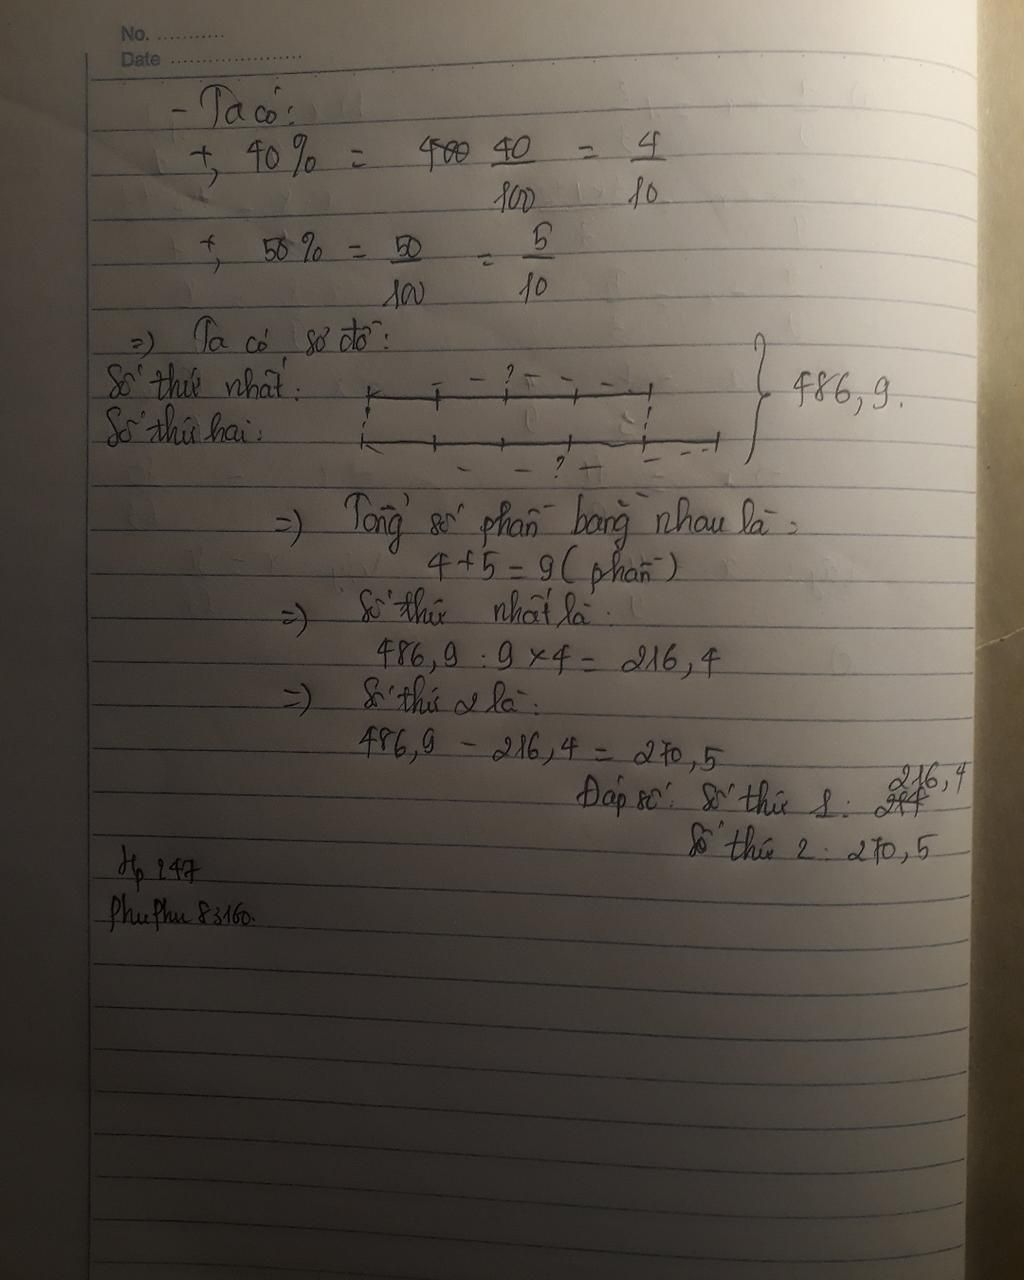 No. ...........
Date ......................
- Ta có:
+, 40% = 40/100 = 4/10
+, 50% = 50/100 = 5/10
=) Ta có sơ đồ:
Số thứ nhất: ?
Số thứ hai: ?
486,9.
=) Tổng số phần bằng nhau là:
4+5 = 9 (phần)
=) Số thứ nhất là:
486,9 : 9 × 4 = 216,4
=) Số thứ 2 là:
486,9 - 216,4 = 270,5
216,4
Đáp số: Số thứ 1:
Số thứ 2: 270,5
Hp 247
PhuPhu 83160.